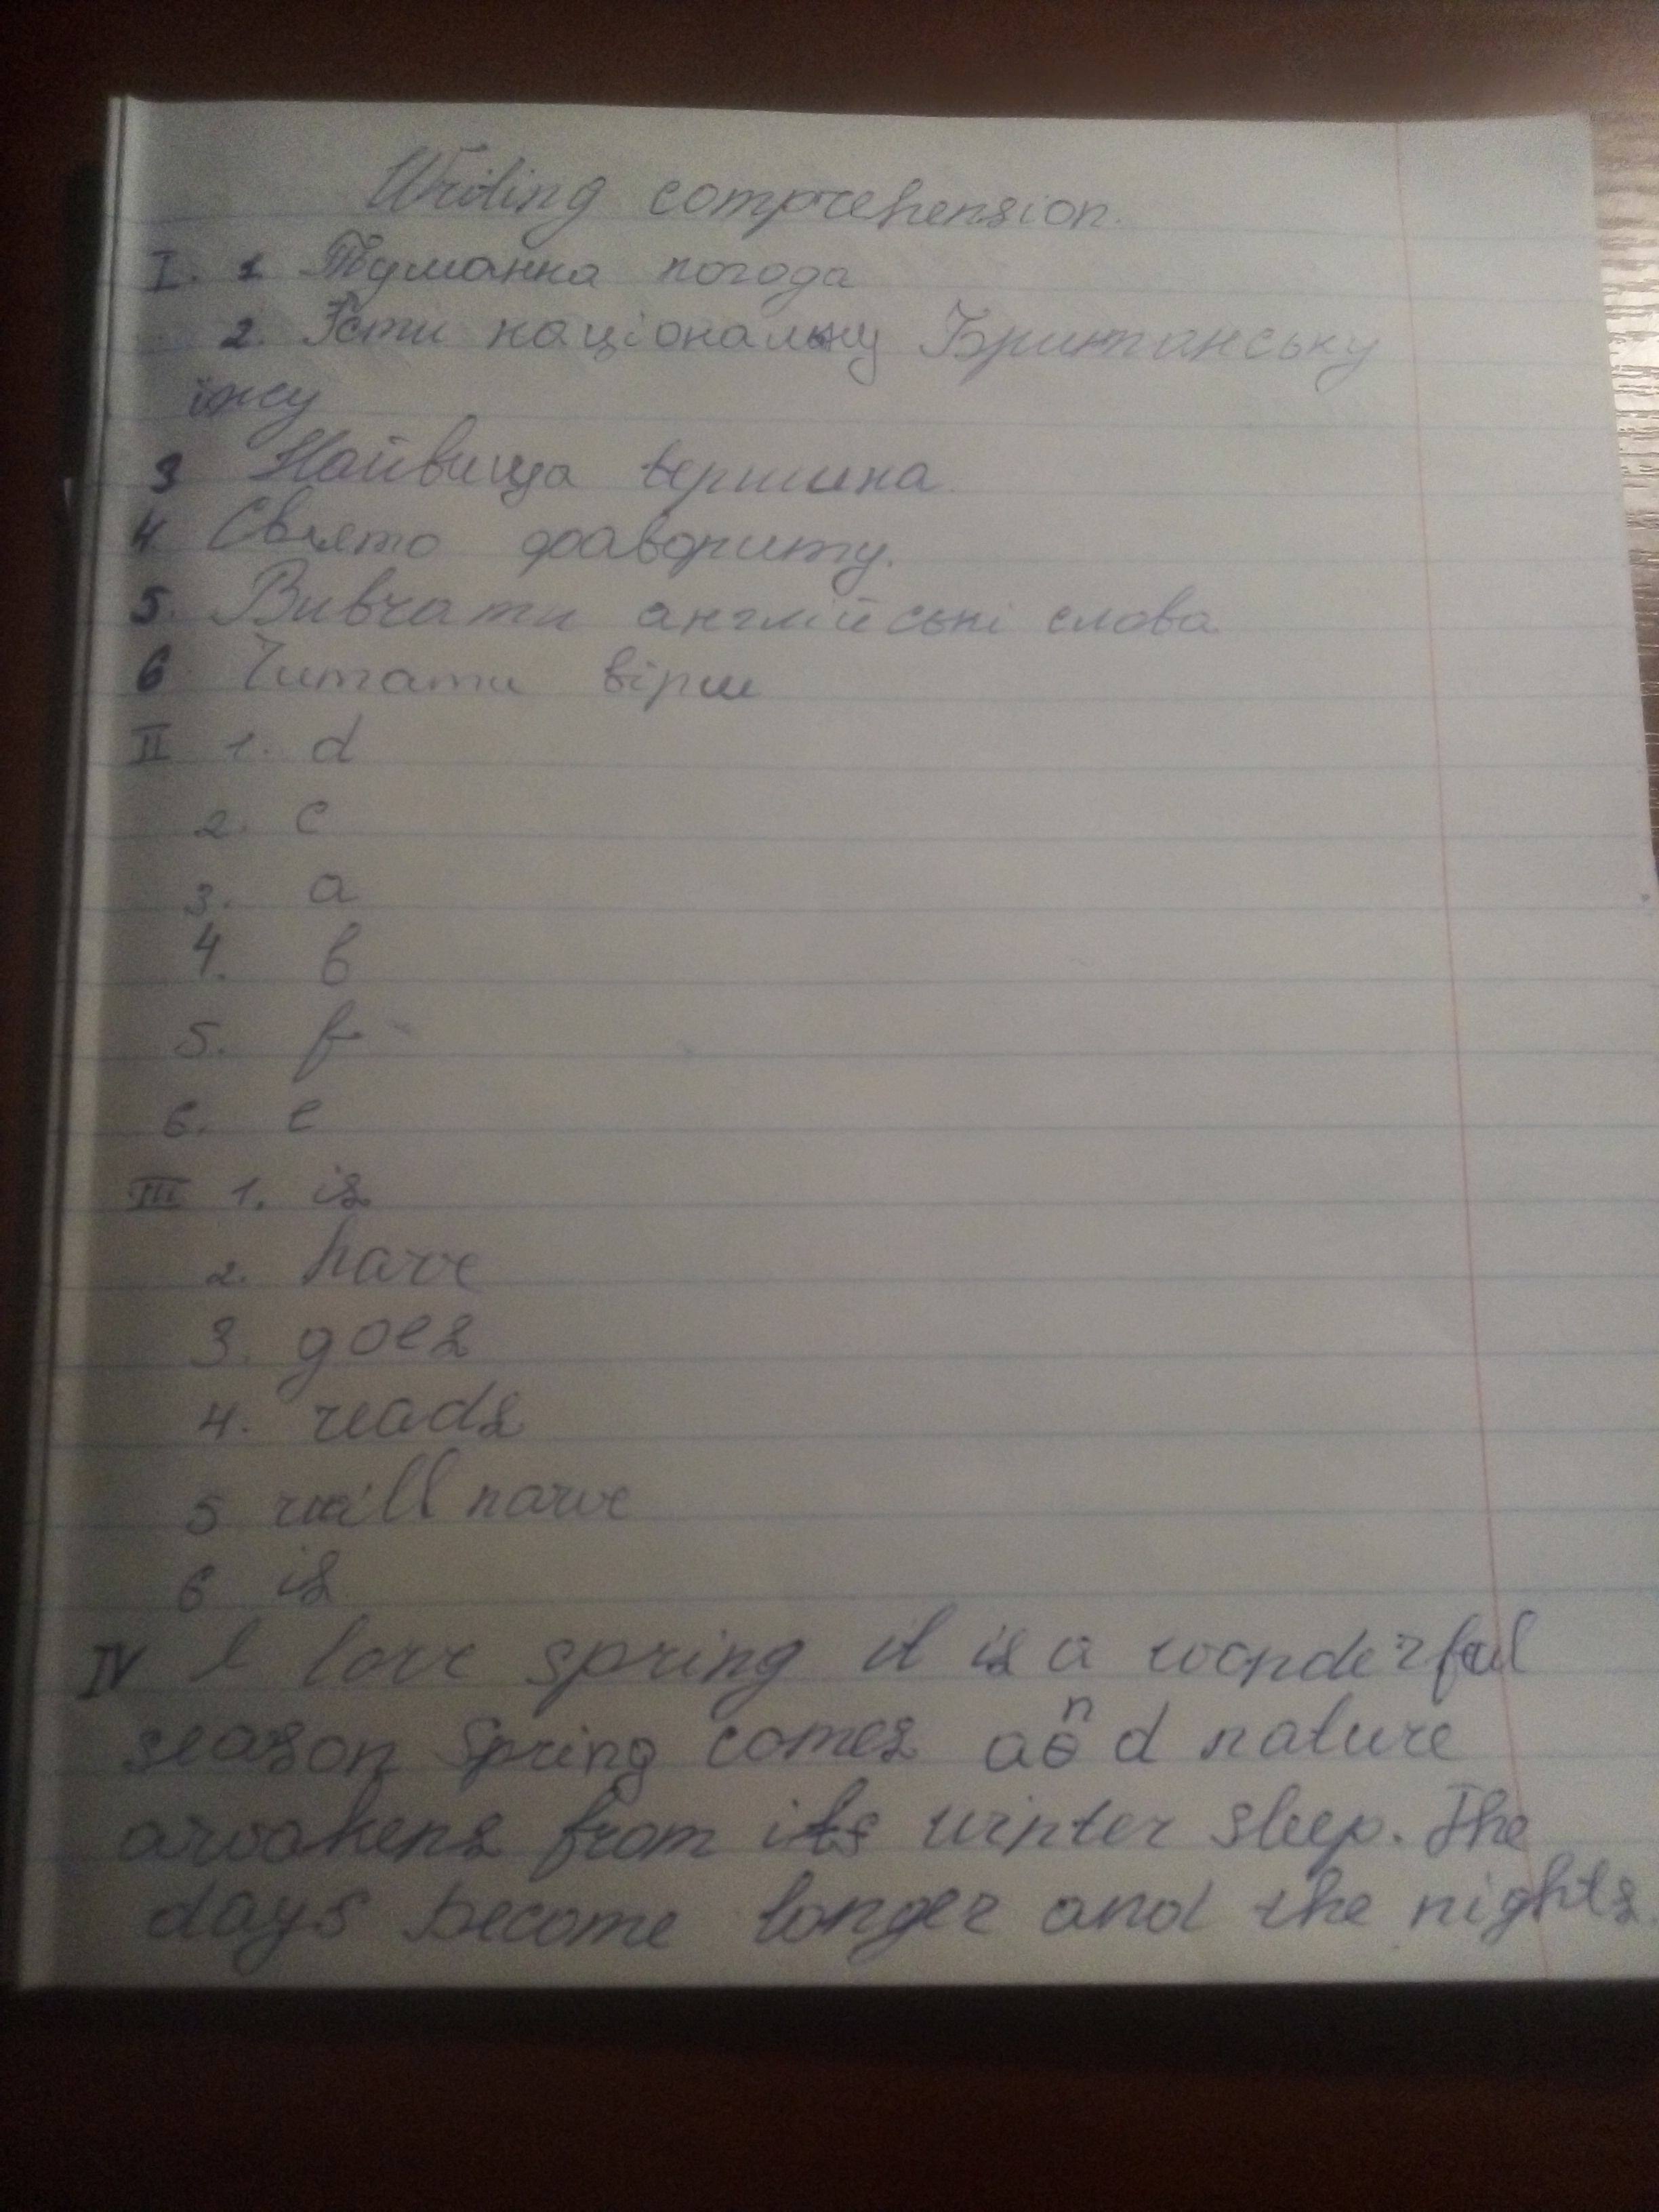 Writing comprehension.
I. 1 Туманна погода
2. Їсти національну Британську
їжу
3 Найвища вершина.
4. Свято фавориту.
5. Вивчати англійські слова
6 Читати вірш
II 1. d
2. c
3. a
4. b
5. f
6. e
III 1. is
2. have
3. goes
4. reads
5 will have
6 is
IV I love spring it is a wonderful
season Spring comes and nature
awakens from its winter sleep. The
days become longer and the nights